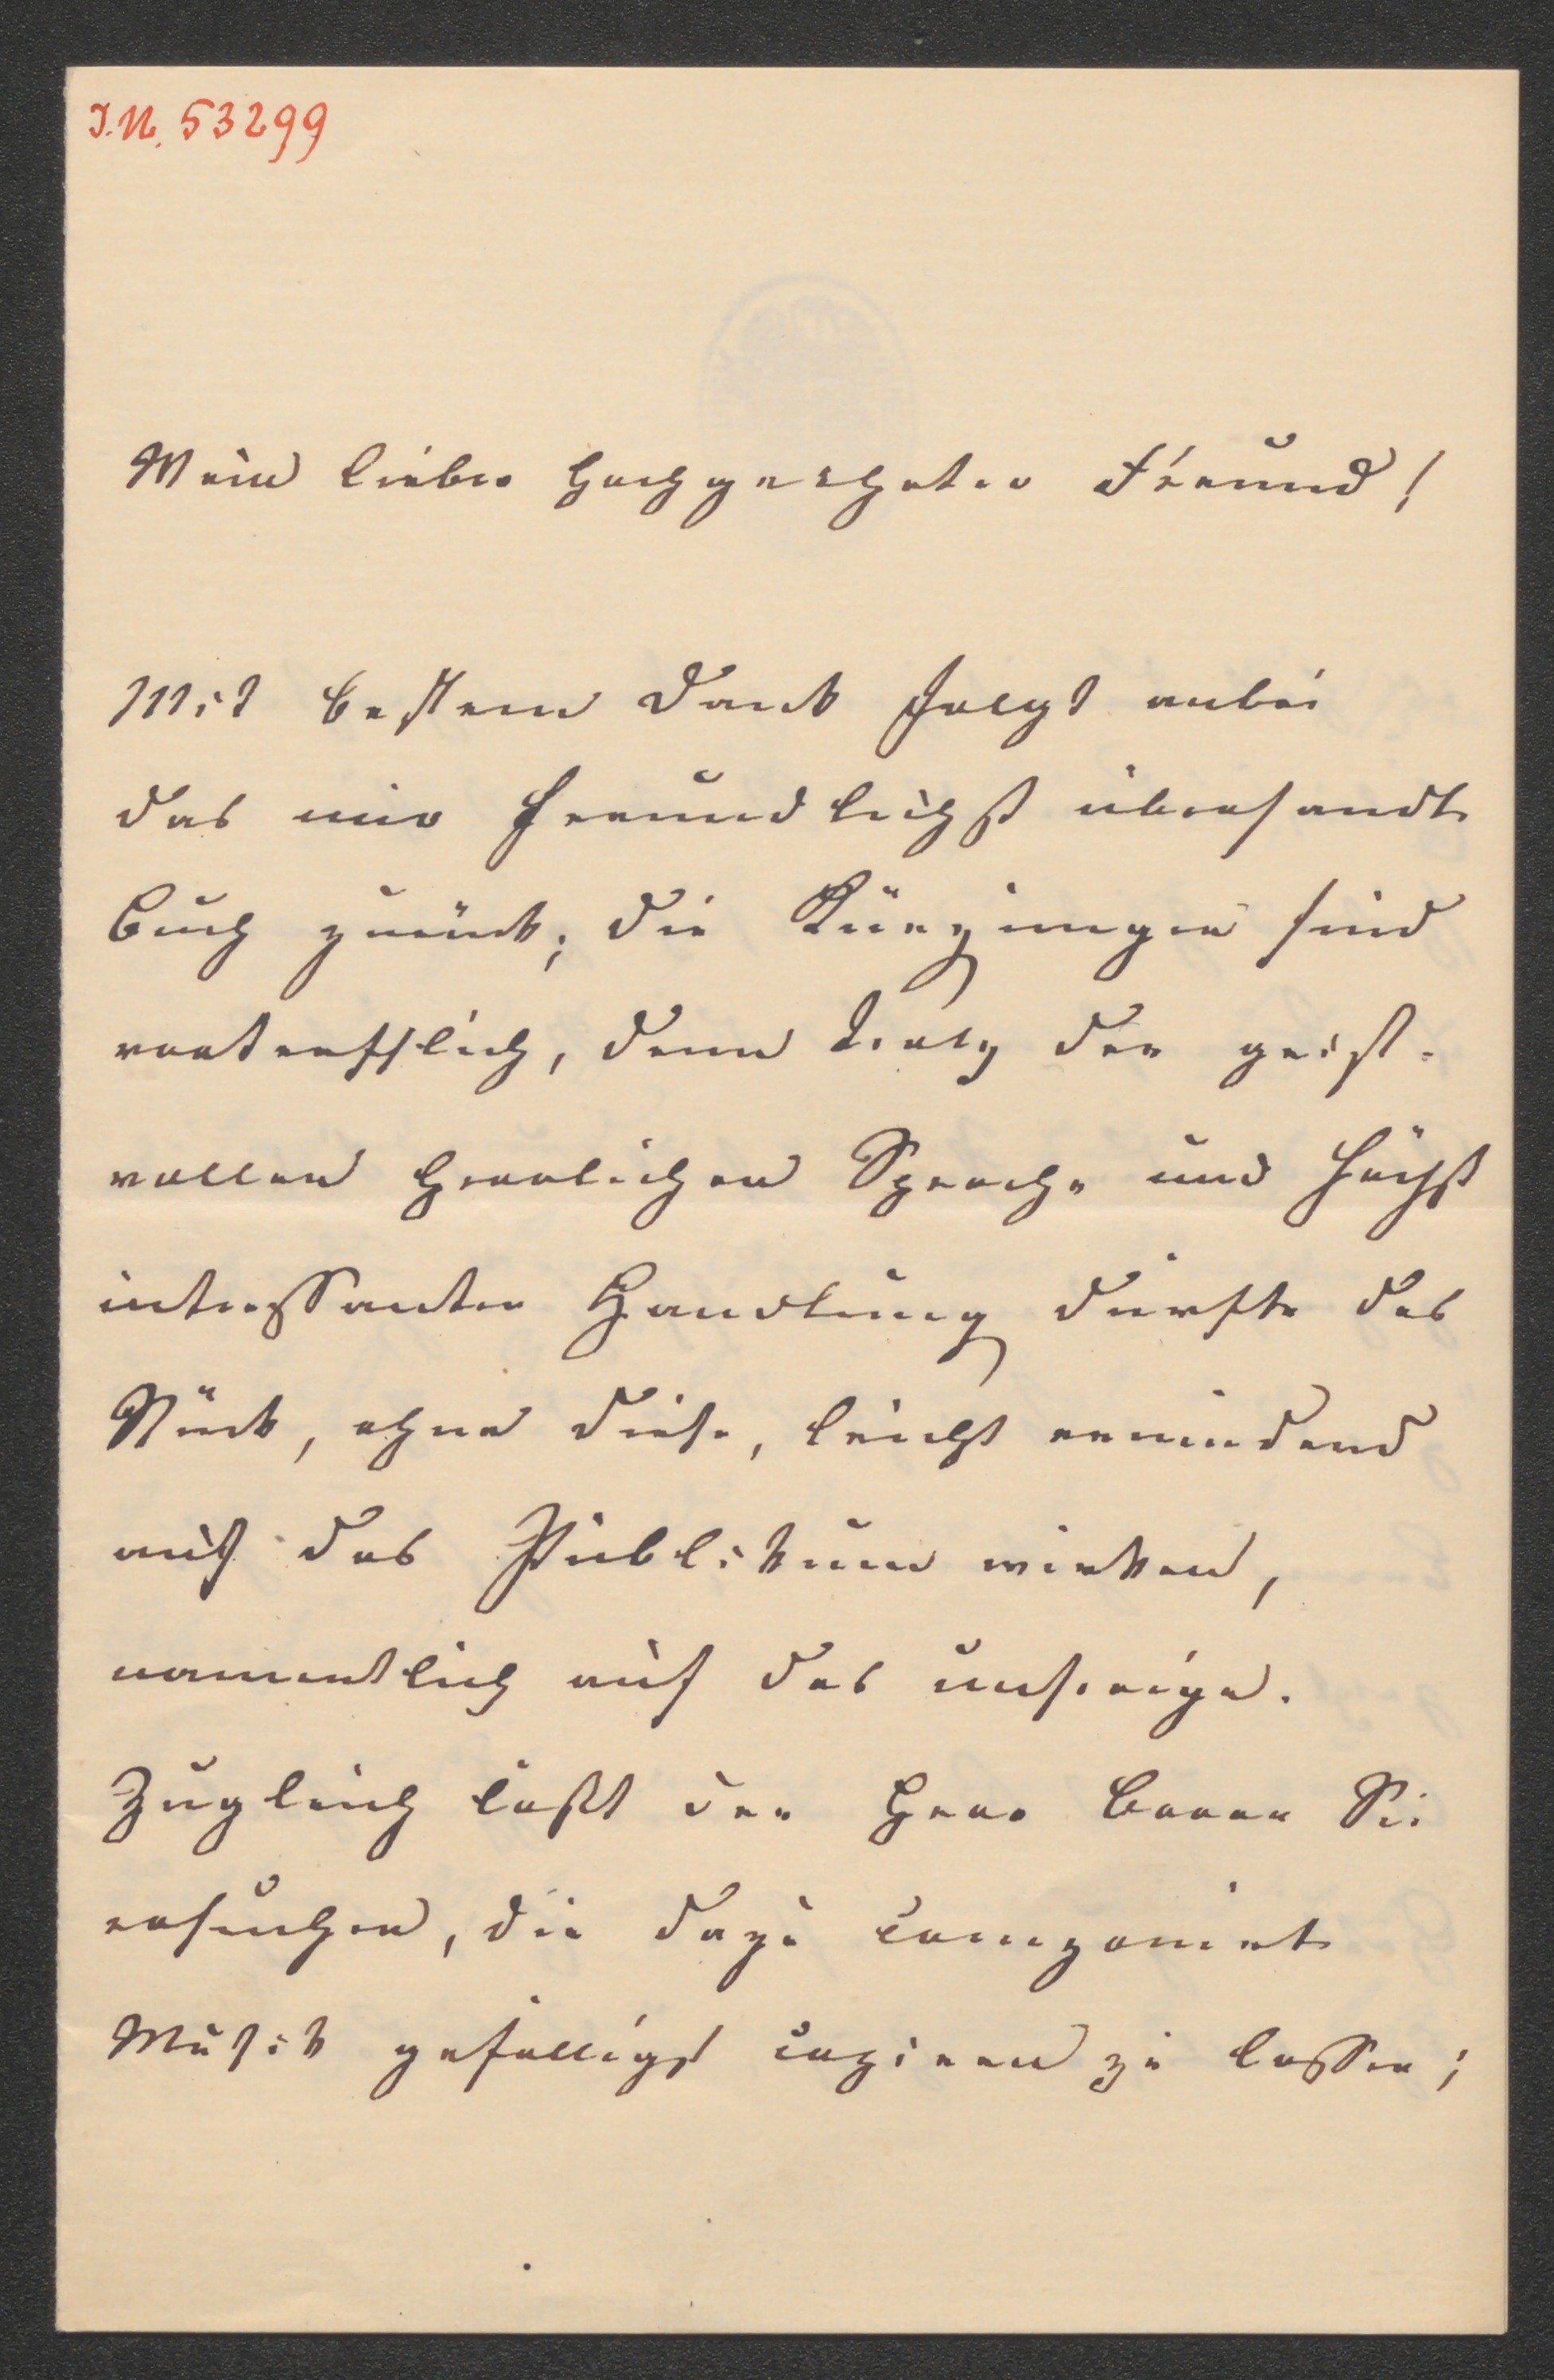 I.N. 53299
Mein lieber hochgeehrter Freund!
Mit bestem Dank folgt anbei
das mir freundlichst übersandte
Buch zurück; die Kürzungen sind
vortrefflich, denn trotz der geist-
vollen herrlichen Sprache und höchst
interessanten Handlung dürfte das
Stück, ohne diese, leicht ermüdend
auf das Publikum wirken,
namentlich auf das unserige.
Zugleich läßt der Herr Baron Sie
ersuchen, die dazu componirte
Musik gefälligst copieren zu lassen;